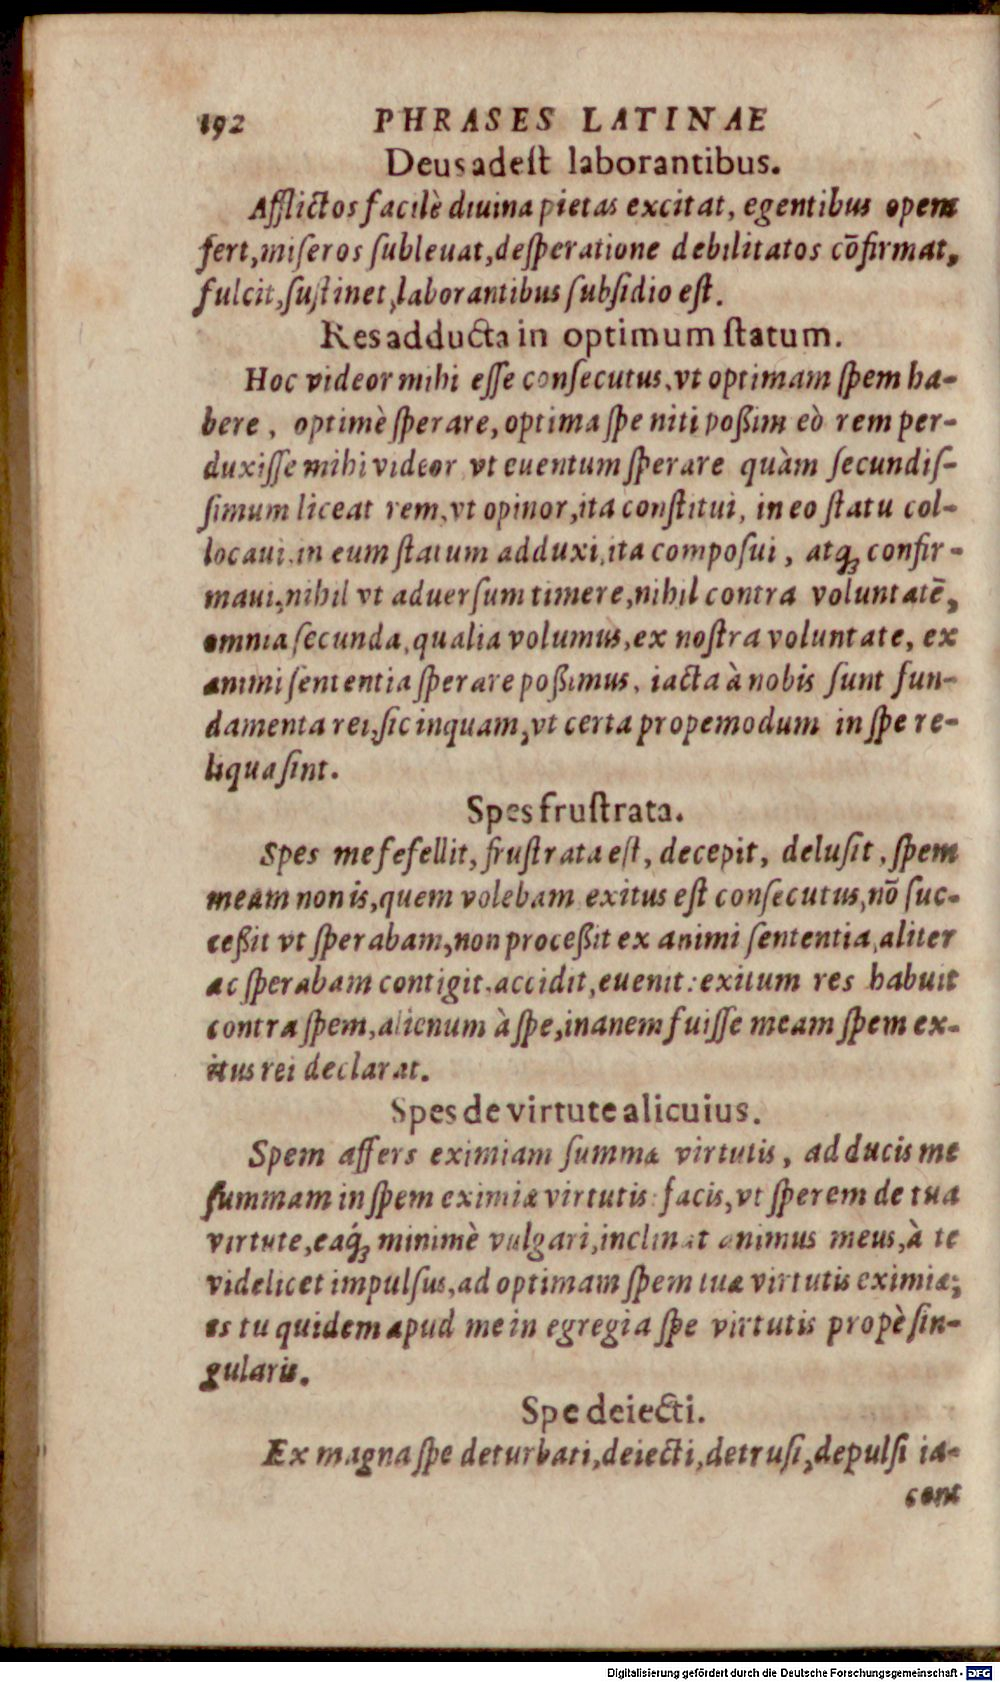 192 PHRASES LATINAE
Deus adeſt laborantibus.
Afflictos facilè diuina pietas excitat, egentibus opem
fert, miſeros ſubleuat, deſperatione debilitatos cõfirmat,
fulcit, ſuſtinet, laborantibus ſubſidio eſt.
Res adducta in optimum ſtatum.
Hoc videor mihi eſſe conſecutus, vt optimam ſpem ha-
bere, optimè ſperare, optima ſpe niti poßim eò rem per-
duxiſſe mihi videor vt euentum ſperare quàm ſecundiſ-
ſimum liceat rem, vt opinor, ita conſtitui, in eo ſtatu col-
locaui, in eum ſtatum adduxi, ita compoſui, atq; confir-
maui, nihil vt aduerſum timere, nihil contra voluntatē,
omnia ſecunda, qualia volumus, ex noſtra voluntate, ex
animi ſententia ſperare poßimus, iacta à nobis ſunt fun-
damenta rei, ſic inquam, vt certa propemodum in ſpe re-
liqua ſint.
Spes fruſtrata.
Spes me fefellit, fruſtrata eſt, decepit, deluſit, ſpem
meam non is, quem volebam exitus eſt conſecutus, nõ ſuc-
ceßit vt ſperabam, non proceßit ex animi ſententia, aliter
ac ſperabam contigit, accidit, euenit: exitum res habuit
contra ſpem, alienum à ſpe, inanem fuiſſe meam ſpem ex-
itus rei declarat.
Spes de virtute alicuius.
Spem affers eximiam ſummæ virtutis, adducis me
ſummam in ſpem eximiæ virtutis: facis, vt ſperem de tua
virtute, eaq́; minimè vulgari, inclinat animus meus, à te
videlicet impulſus, ad optimam ſpem tuæ virtutis eximiæ;
es tu quidem apud me in egregia ſpe virtutis propè ſin-
gularis.
Spe deiecti.
Ex magna ſpe deturbati, deiecti, detruſi, depulſi ia-
cent
Digitalisierung gefördert durch die Deutsche Forschungsgemeinschaft - DFG